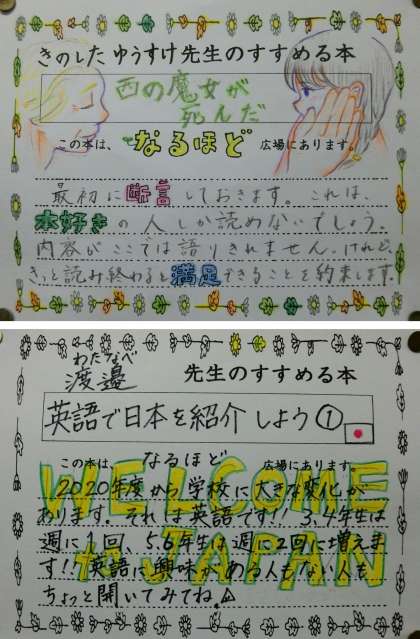 きのした ゆうすけ 先生のすすめる本
西の魔女が
死んだ
この本は、なるほど 広場にあります。
最初に断言しておきます。これは、
本好きの人しか読めないでしょう。
内容がここでは語りきれません。けれど、
きっと読み終わると満足できることを約束します。
わたなべ
渡邉 先生のすすめる本
英語で日本を紹介しよう①
この本は、なるほど 広場にあります。
WELCOME
to JAPAN
2020年度から学校に大きな変化が
あります。それは英語です!! 3、4年生は
週に1回、5、6年生は週に2回に増えま
す!! 英語に興味がある人もない人も
ちょっと開いてみてね。